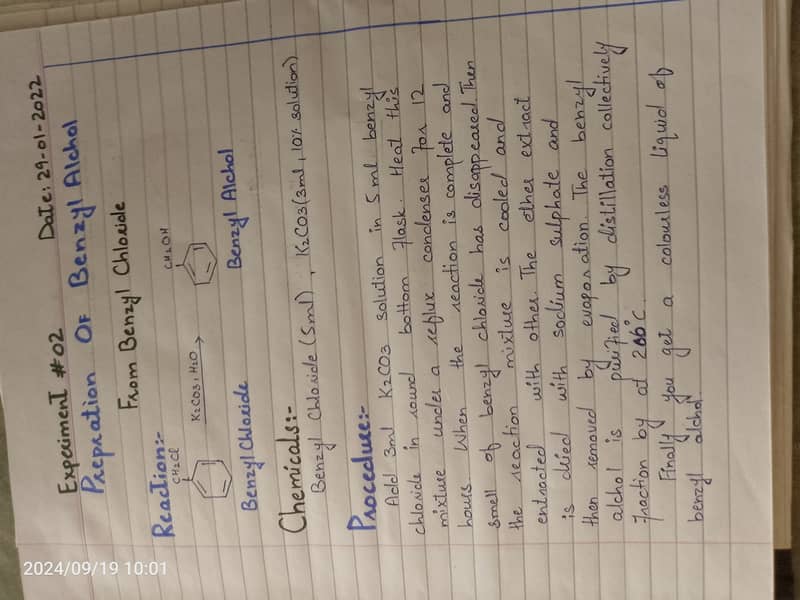 Experiment #02
Date: 29-01-2022
Prepration Of Benzyl Alchol
From Benzyl Chloride
Reaction:-
CH2Cl
K2CO3, H2O
CH2OH
Benzyl Chloride
Benzyl Alchol
Chemicals:-
Benzyl Chloride (5ml), K2CO3 (3ml, 10% solution)
Procedure:-
Add 3ml K2CO3 solution in 5 ml benzyl
chloride in round bottom flask. Heat this
mixture under a reflux condenser for 12
hours. When the reaction is complete and
smell of benzyl chloride has disappeared. Then
the reaction mixture is cooled and
entracted with other. The ether extract
is dried with sodium sulphate and
then removed by evaporation. The benzyl
alchol is purified by distillation collectively
fraction by at 206°C.
Finally you get a colourless liquid of
benzyl alchol.
2024/09/19 10:01